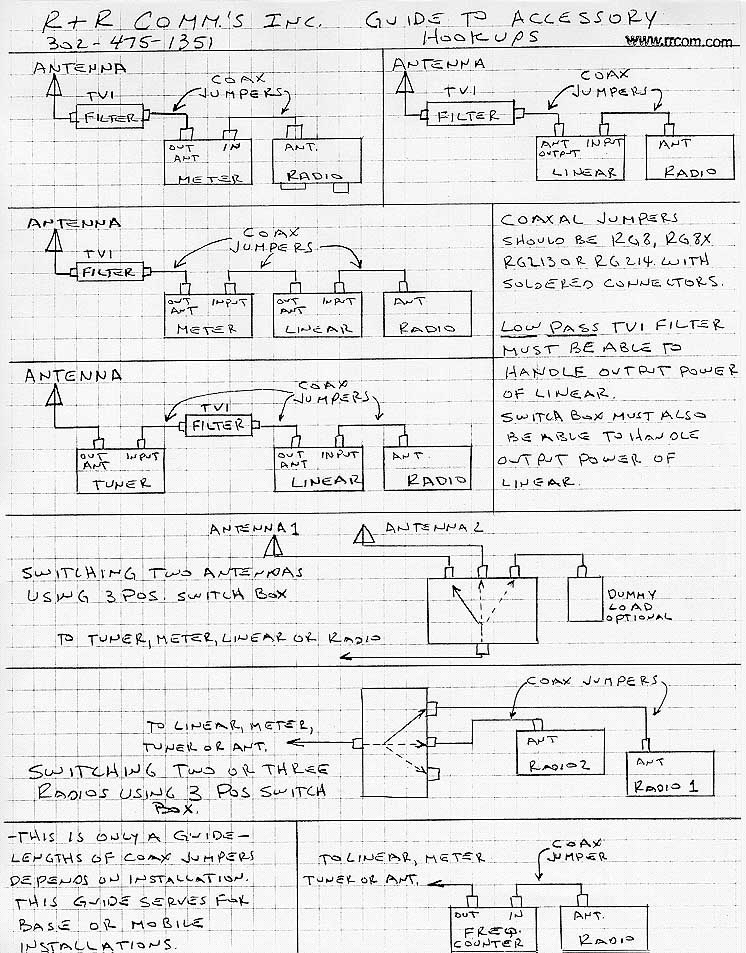 R+R COMM.'S INC. GUIDE TO ACCESSORY
302-475-1351 HOOKUPS www.rrcom.com
ANTENNA
TVI
FILTER
COAX
JUMPERS
OUT IN
ANT
METER
ANT.
RADIO
ANTENNA
TVI
FILTER
COAX
JUMPERS
ANT INPUT
OUTPUT
LINEAR
ANT
RADIO
ANTENNA
TVI
FILTER
COAX
JUMPERS
OUT INPUT
ANT
METER
OUT INPUT
ANT
LINEAR
ANT
RADIO
COAXAL JUMPERS
SHOULD BE RG8, RG8X
RG213 OR RG214. WITH
SOLDERED CONNECTORS.
LOW PASS TVI FILTER
MUST BE ABLE TO
HANDLE OUTPUT POWER
OF LINEAR.
SWITCH BOX MUST ALSO
BE ABLE TO HANDLE
OUTPUT POWER OF
LINEAR.
ANTENNA
TVI
FILTER
COAX
JUMPERS
OUT INPUT
ANT
TUNER
OUT INPUT
ANT
LINEAR
ANT
RADIO
ANTENNA 1 ANTENNA 2
SWITCHING TWO ANTENNAS
USING 3 POS. SWITCH BOX
TO TUNER, METER, LINEAR OR RADIO
DUMMY
LOAD
OPTIONAL
COAX JUMPERS
TO LINEAR, METER,
TUNER OR ANT.
SWITCHING TWO OR THREE
RADIOS USING 3 POS SWITCH
BOX.
ANT
RADIO 2
ANT
RADIO 1
-THIS IS ONLY A GUIDE-
LENGTHS OF COAX JUMPERS
DEPENDS ON INSTALLATION.
THIS GUIDE SERVES FOR
BASE OR MOBILE
INSTALLATIONS.
TO LINEAR, METER
TUNER OR ANT.
COAX
JUMPER
OUT IN
FREQ.
COUNTER
ANT.
RADIO